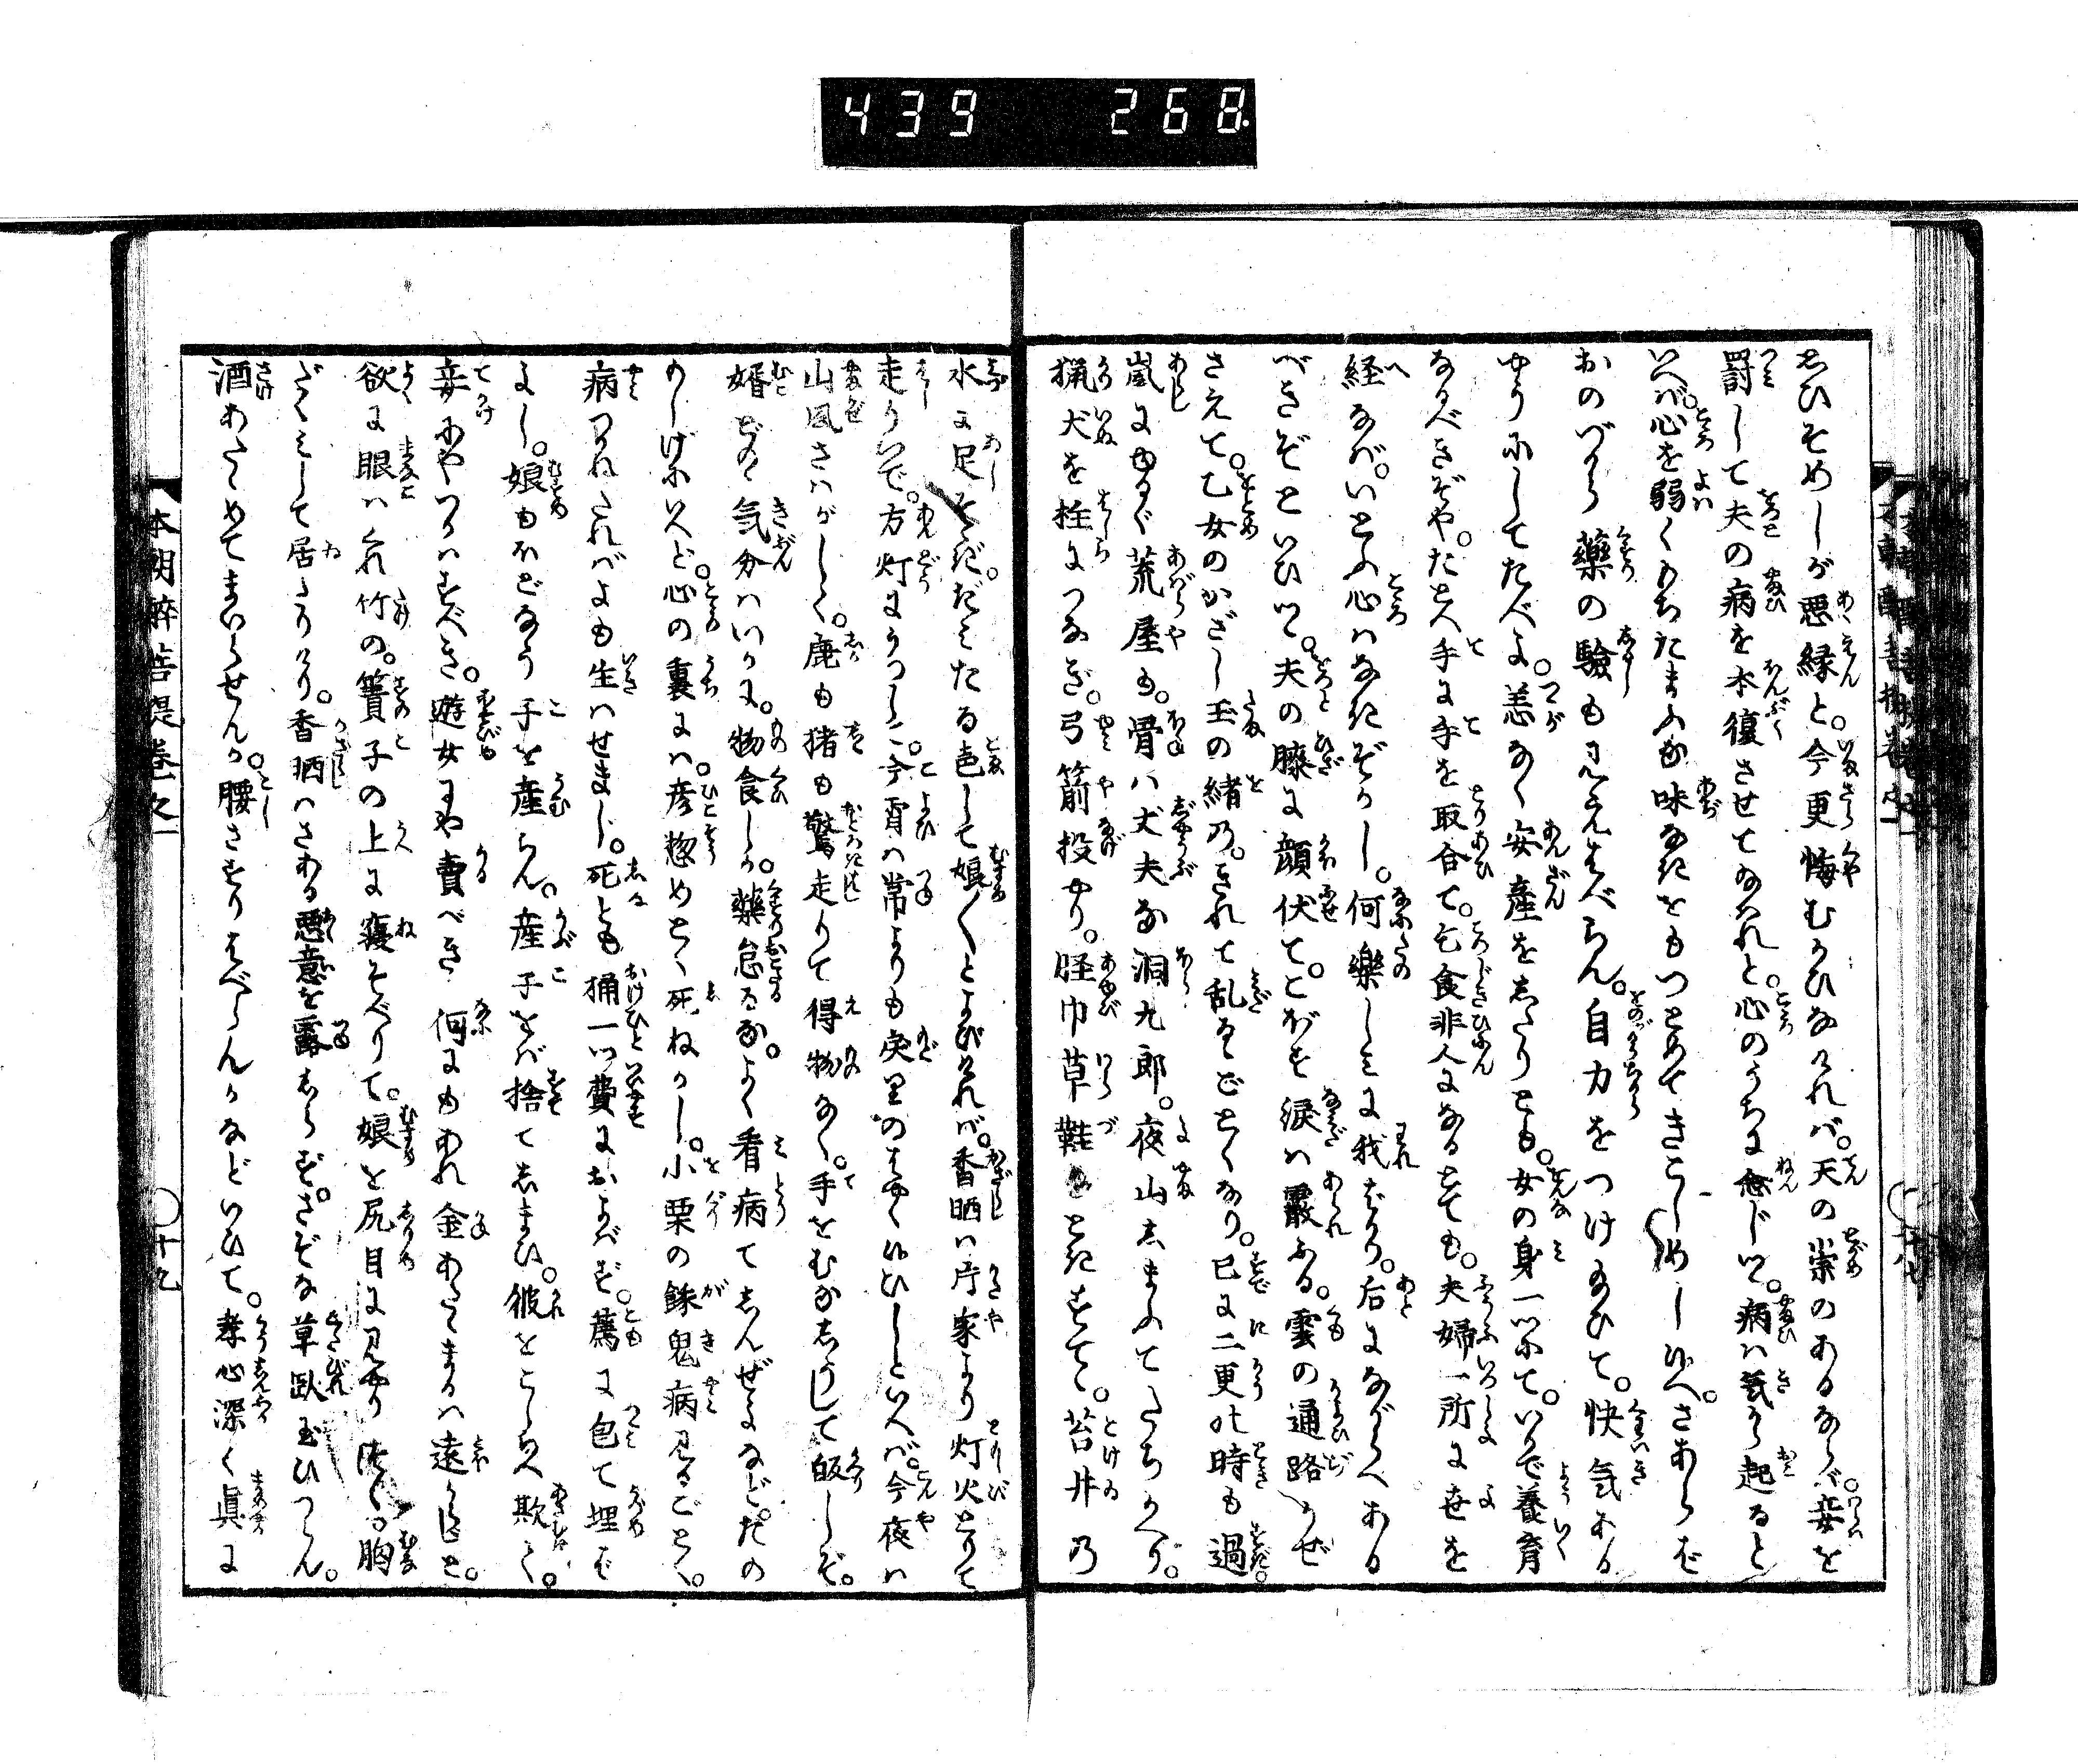 439 268.
ゑひそめしが悪縁と。今更悔むかひなければ。天の祟のあるならば。妾を
罰して夫の病を本復させてたまはれと。心のうちに念じつゝ。病は気から起ると
いへば。心を弱くもちたまふな味なきをもつとめてきこしめし給へ。さあらば
おのづから薬の験も見え侍べらん。自力をつけ給ひて。快気ある
やうにしてたべよ。恙なく安産をしたりとも。女の身一ツにて。いかで養育
なるべきぞや。たとへ手に手を取合て。乞食非人になるとても。夫婦一所に世を
経なば。いとふ心はなきぞかし。何楽しみに我ばかり。后にながらへある
べきぞといひつゝ。夫の膝に顔伏て。こぼす涙は霰ふる。雲の通路かぜ
さえて。乙女のかざし玉の緒の。きれて乱るゝごとくなり。已に二更の時も過。
嵐にゆるぐ荒屋も。骨は丈夫な洞九郎。夜山しまふてたちかへり。
猟犬を柱につなぎ。弓箭投やり。脛巾草鞋ときすてゝ。苔井乃
水に足そゝぎ。だみたる声して娘〳〵とよびければ。香晒は片家より灯火とりて
走りいで。方灯にうつし。今宵は常よりも戻りのはやく候ひしといへば。今夜は
山風さはがしく。鹿も猪も驚走りて得物なく。手をむなしうして皈しぞ。
婿どのゝ気分はいかに。物食しか。薬怠るな。よく看病てしんぜよなど。たの
もしげにいへど。心の裏には。彦惣めとく死ねかし。小栗の餓鬼病見るごとく。
病つかれたればよも生はせまじ。死とも桶一ツ費におよばず。薦に包て埋ば
よし。娘もほどなう子を産らん。産子をば捨てしまひ。彼をこしらへ欺て。
妾にやつかはすべき。遊女にや賣べき何にもあれ金あたゝまるは遠からじと。
欲に眼はくれ竹の。簀子の上に寝そべりて。娘を尻目に見やりつゝ。胸
だくみして居たりけり。香晒はさある悪意を露しらず。さぞな草臥玉ひつらん。
酒あたゝめてまいらせんか。腰さすり侍べらんかなどいひて。孝心深く真に
本朝酔菩提巻之一
十九